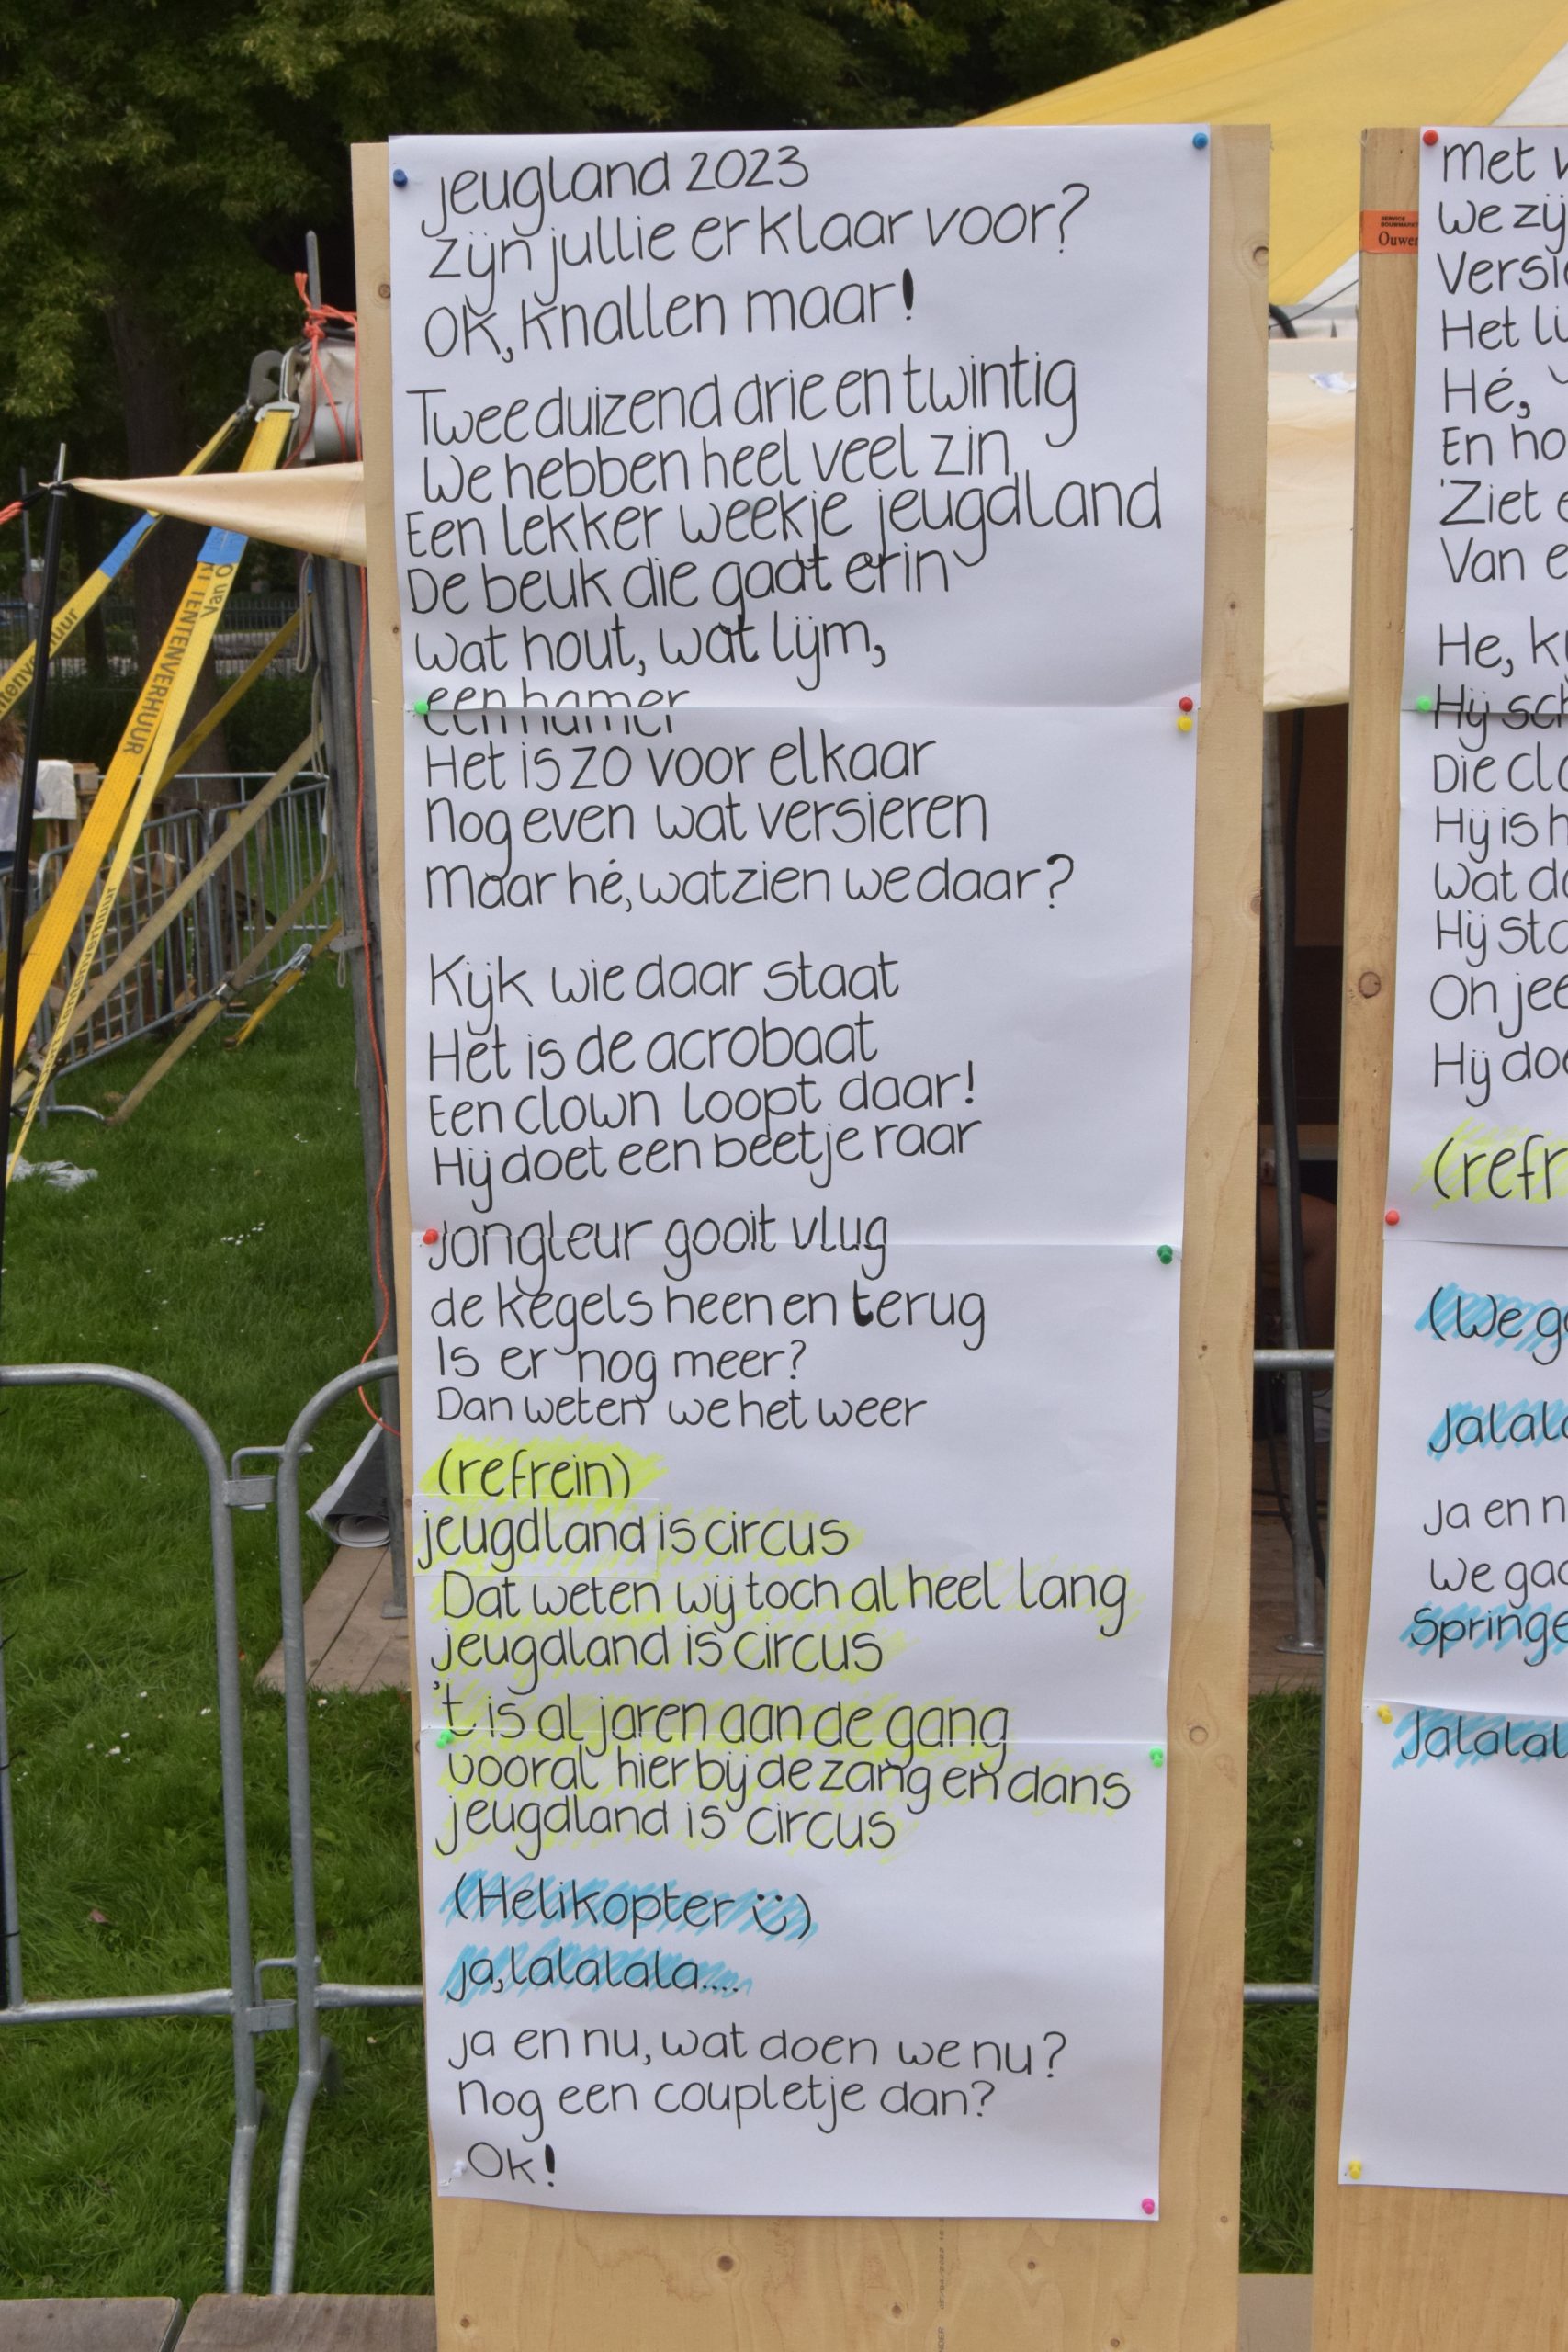 jeugland 2023
zijn jullie er klaar voor?
Ok, knallen maar!
Tweeduizend drie en twintig
We hebben heel veel zin
Een lekker weekje jeugdland
De beuk die gaat erin
wat hout, wat lijm,
een hamer
Het is zo voor elkaar
Nog even wat versieren
Maar hé, wat zien we daar?
Kijk wie daar staat
Het is de acrobaat
Een clown loopt daar!
Hij doet een beetje raar
jongleur gooit vlug
de kegels heen en terug
Is er nog meer?
Dan weten we het weer
(refrein)
jeugdland is circus
Dat weten wij toch al heel lang
jeugdland is circus
't is al jaren aan de gang
vooral hier bij de zang en dans
jeugdland is circus
(Helikopter ü)
ja, lalalala....
ja en nu, wat doen we nu?
Nog een coupletje dan?
Ok!
Met
We
Het
Hé,
En
'Ziet
Van
He,
Hij
Die
Hij is
Wat
Hij
Oh jee
Hij
(We
ja en
We
TENTENVERHUUR
Van
SERVICE
BOUWMARKT